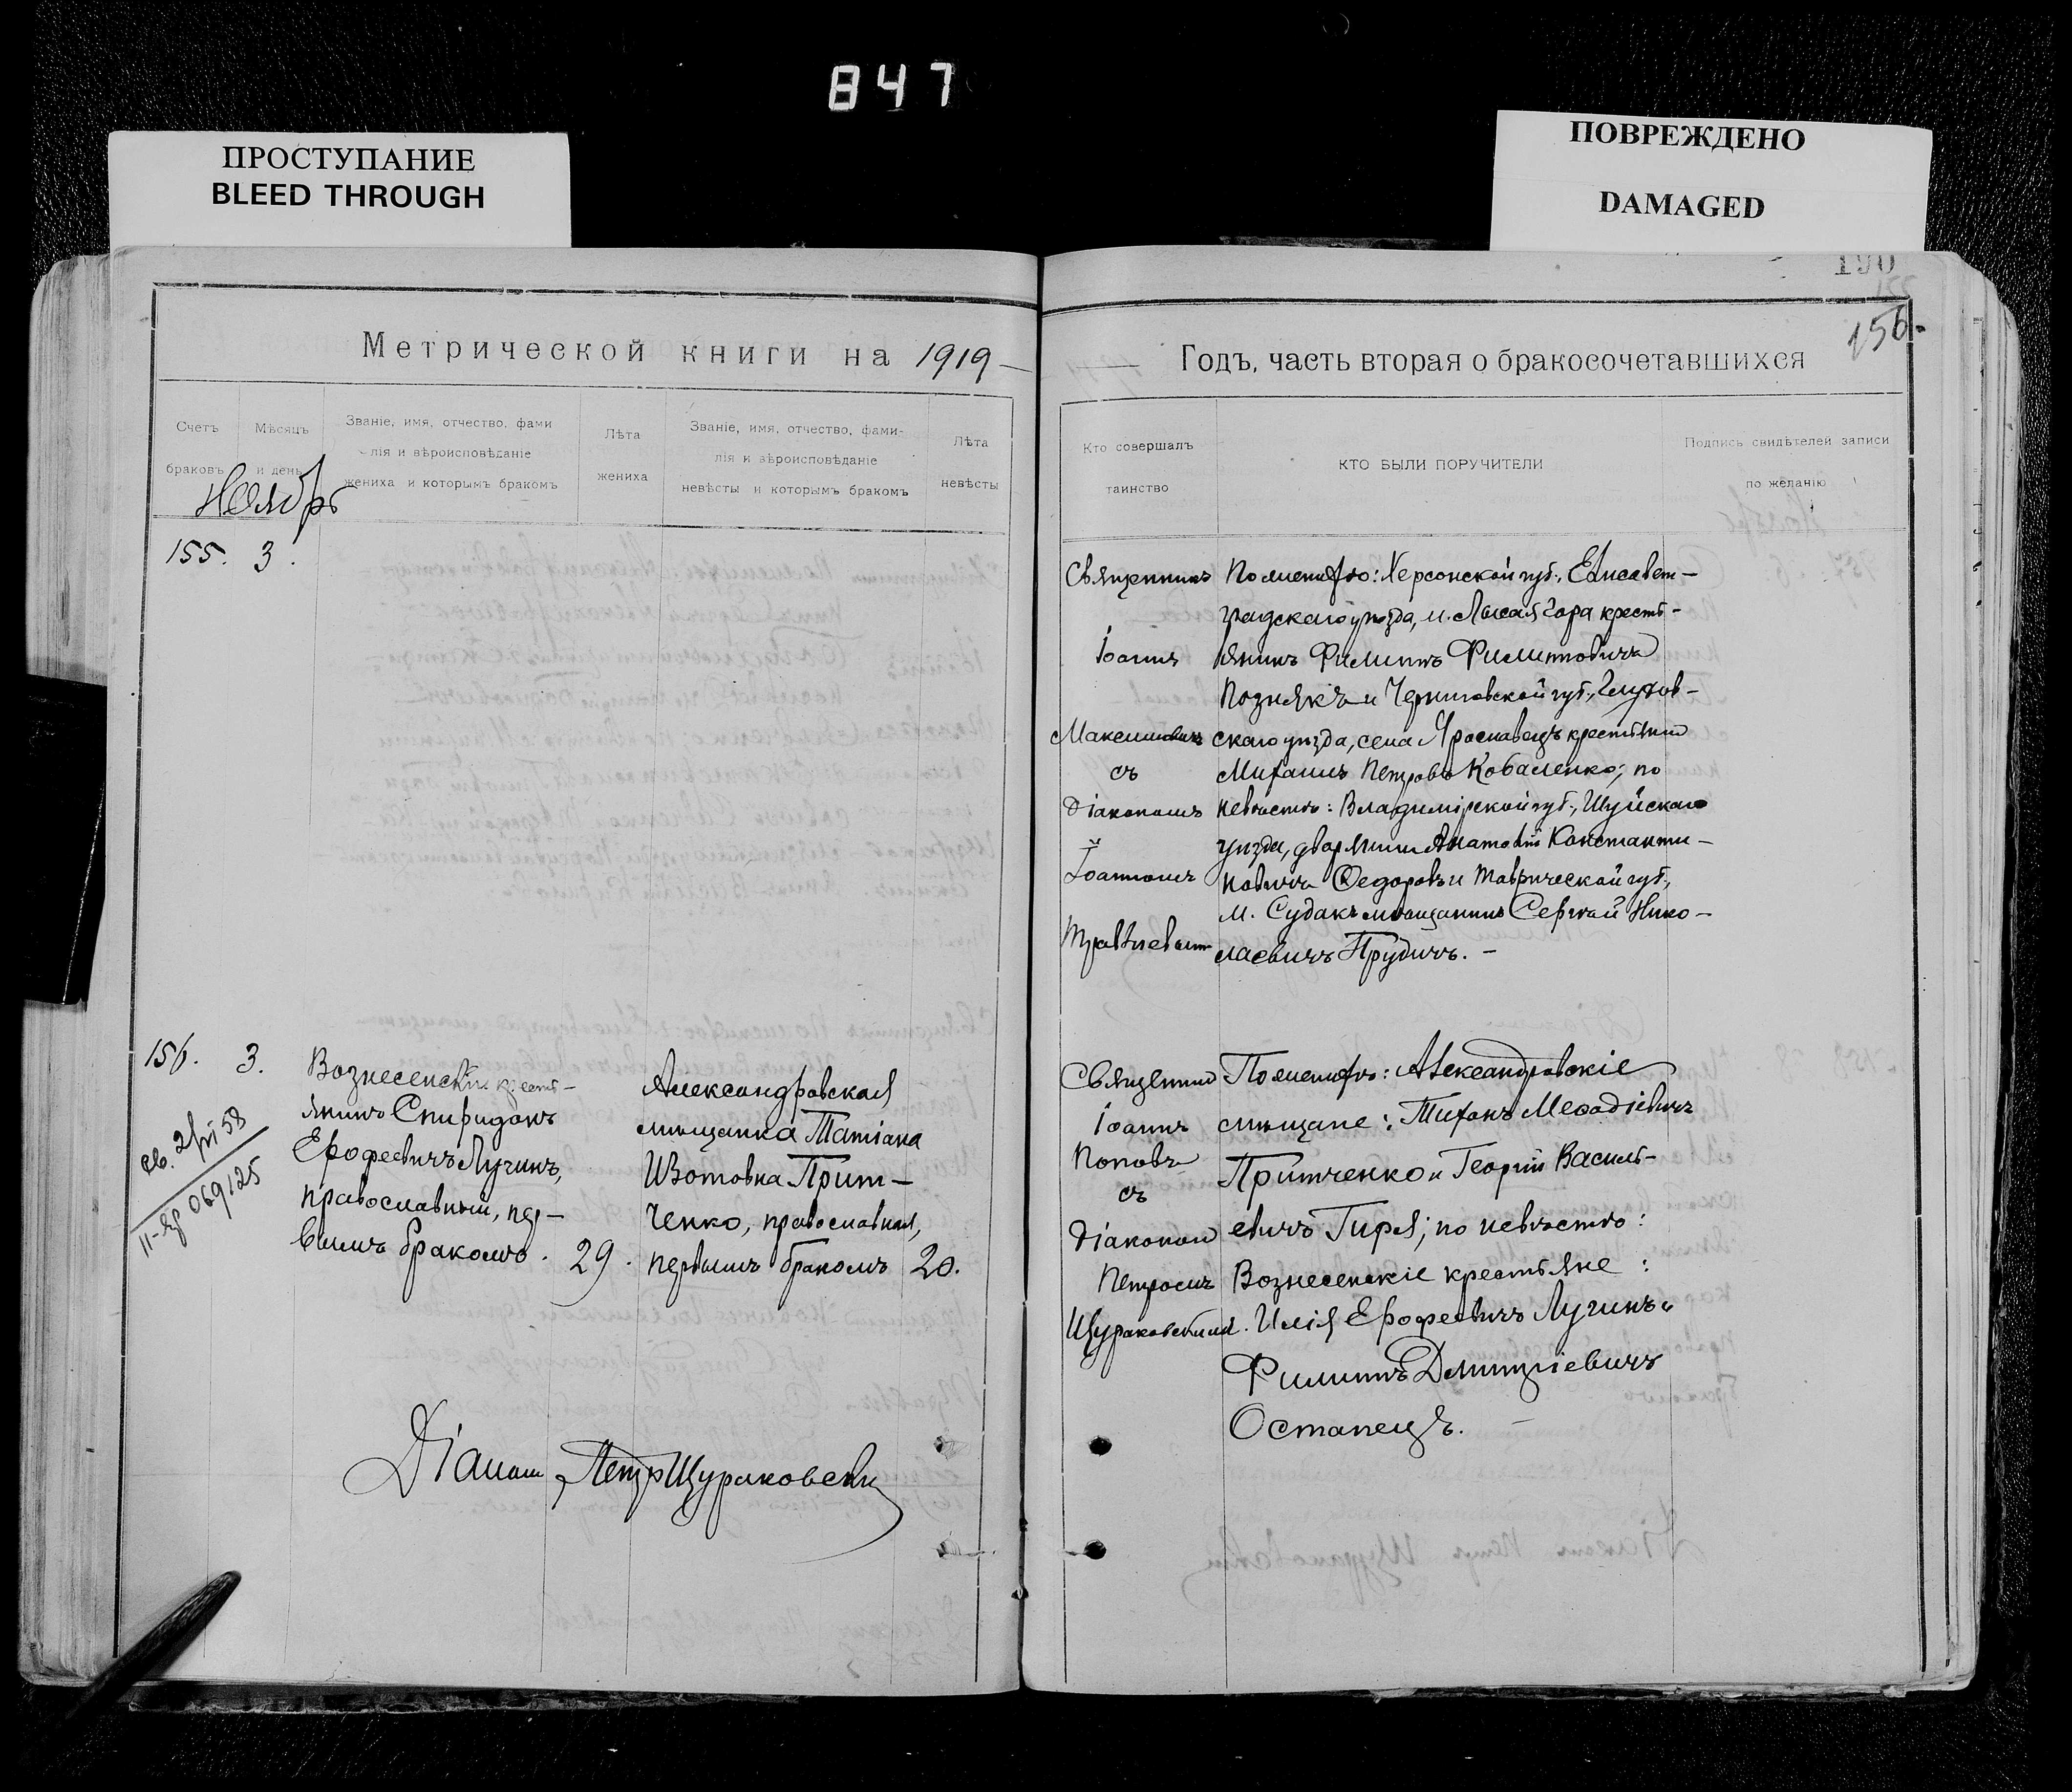 847
ПРОСТУПАНИЕ
BLEED THROUGH
ПОВРЕЖДЕНО
DAMAGED
190
156.
Метрической книги на 1919
Счетъ
браковъ
Мѣсяцъ
и день
Званіе, имя, отчество, фами
лія и вѣроисповѣданіе
жениха и которымъ бракомъ
Лѣта
жениха
Званіе, имя, отчество, фами-
лія и вѣроисповѣданіе
невѣсты и которымъ бракомъ
Лѣта
невѣсты
Ноябрь
155. 3.
156. 3.
Вознесенскій кресть-
янинъ Спиридонъ
Ерофеевичъ Лучинъ,
православный, пер-
вымъ бракомъ. 29.
Александровская
мѣщанка Татіана
Изотовна Прит-
ченко, православная,
первымъ бракомъ 20.
069125
Діаконъ Петръ Щураковскій
Годъ, часть вторая о бракосочетавшихся
Кто совершалъ
таинство
КТО БЫЛИ ПОРУЧИТЕЛИ
Подпись свидѣтелей записи
по желанію
Священникъ
Іоаннъ
Максимовичъ
съ
Діакономъ
Іоанномъ
По женихѣ: Херсонской губ., Елисавет-
градскаго уѣзда, м. Лысая Гора кресть-
янинъ Филиппъ Филипповичъ
Познякъ и Черниговской губ., Глухов-
скаго уѣзда, села Ярославецъ крестьянинъ
Михаилъ Петровъ Коваленко; по
невѣстѣ: Владимірской губ., Шуйскаго
уѣзда, дворянинъ Анатолій Константи-
новичъ Федоровъ и Таврической губ.,
м. Судакъ мѣщанинъ Сергѣй Нико-
лаевичъ Прудичъ. -
Священникъ
Іоаннъ
Поповъ
съ
Діакономъ
Петромъ
Щураковскимъ.
По женихѣ: Александровскіе
мѣщане: Тихонъ Мефодіевичъ
Притченко и Георгій Василь-
евичъ Гиря; по невѣстѣ:
Вознесенскіе крестьяне:
Илія Ерофеевичъ Лучинъ и
Филиппъ Дмитріевичъ
Остапецъ. -